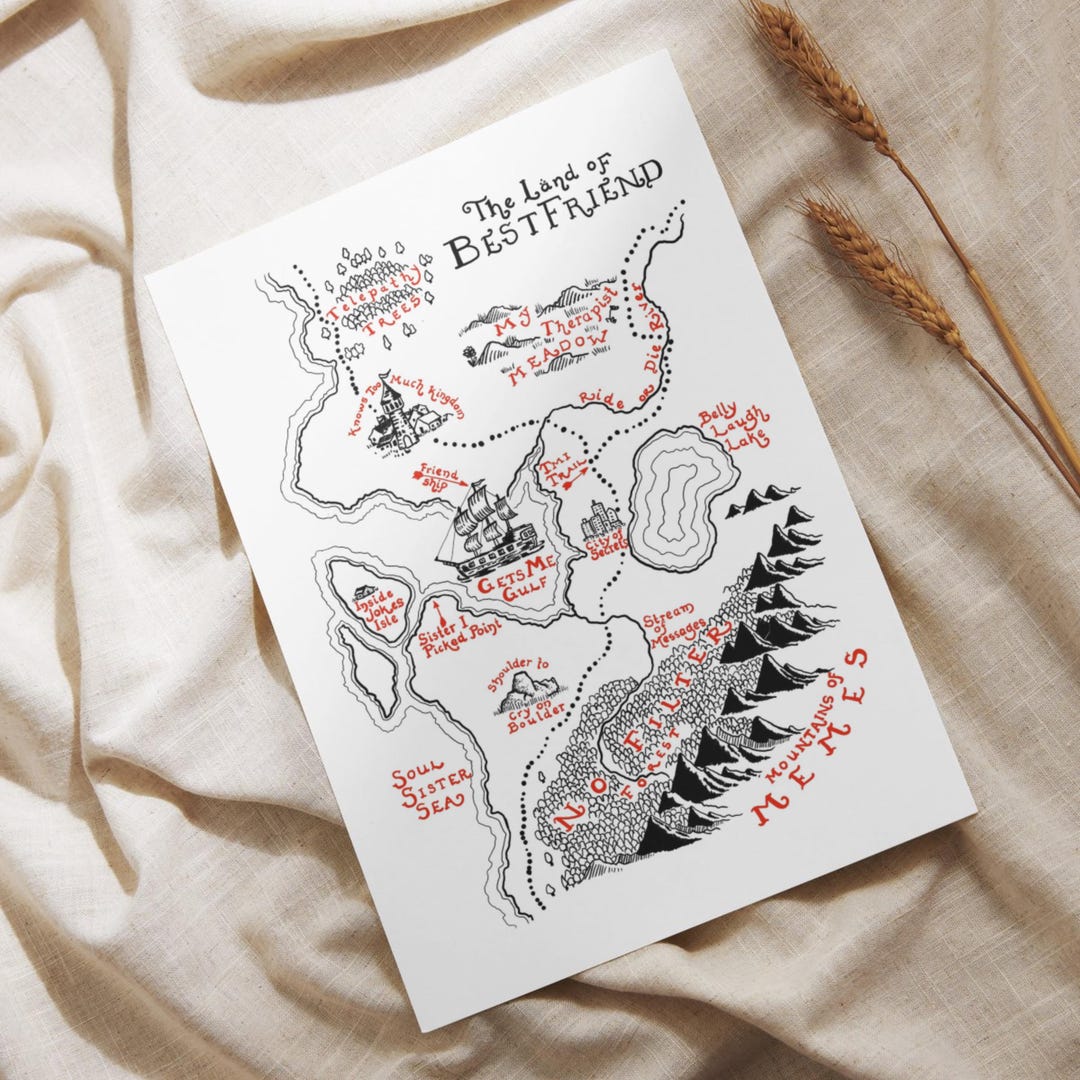 The Länd of
BESTFRIEND
Telepathy
TREES
My Therapist
MEADOW
Ride or pie River
Knows Too Much Kingdom
Belly
Laugh
Lake
Friend
ship
TMI
TRAIL
City of
Secrets
GETS ME
GULF
Inside
Jokes
Isle
Sister I
Picked Point
Stream
of
Messages
Shoulder to
Cry on
Boulder
NO FILTER
FOREST
MOUNTAINS of
MEMES
SOUL
SISTER
SEA